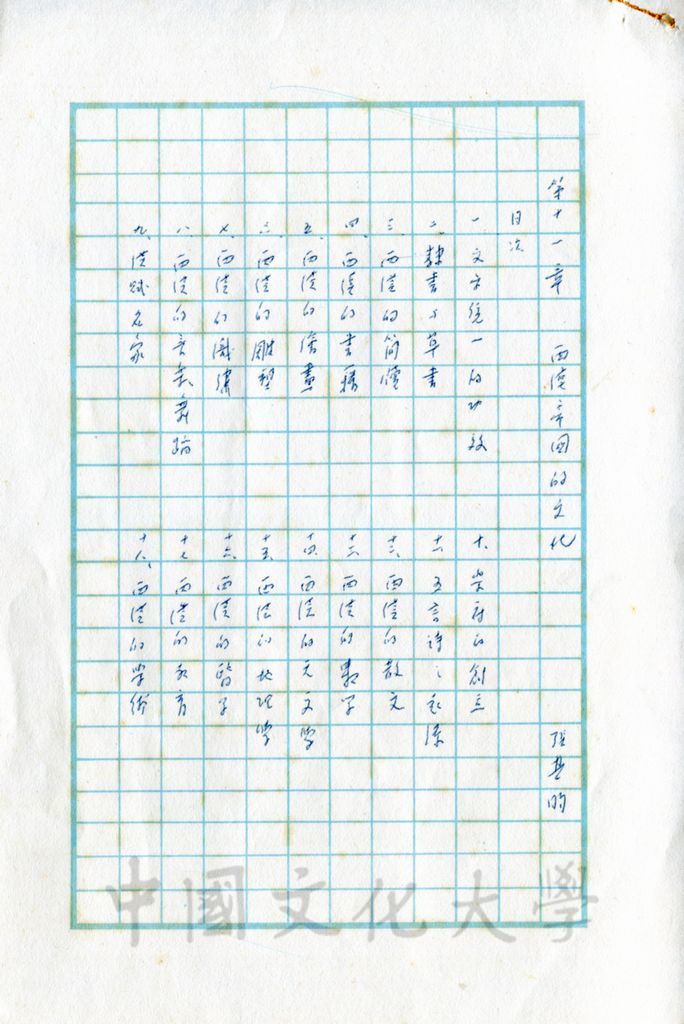 第十一章 西漢帝國的文化 張其昀
目次
一、文字統一的功效
二、隸書與草書
三、西漢的簡牘
四、西漢的書籍
五、西漢的繪畫
六、西漢的雕塑
七、西漢的刺繡
八、西漢的音樂舞蹈
九、漢賦名家
十、樂府的創立
十一、五言詩之起源
十二、西漢的散文
十三、西漢的數學
十四、西漢的天文學
十五、西漢的地理學
十六、西漢的醫學
十七、西漢的教育
十八、西漢的學術
中國文化大學